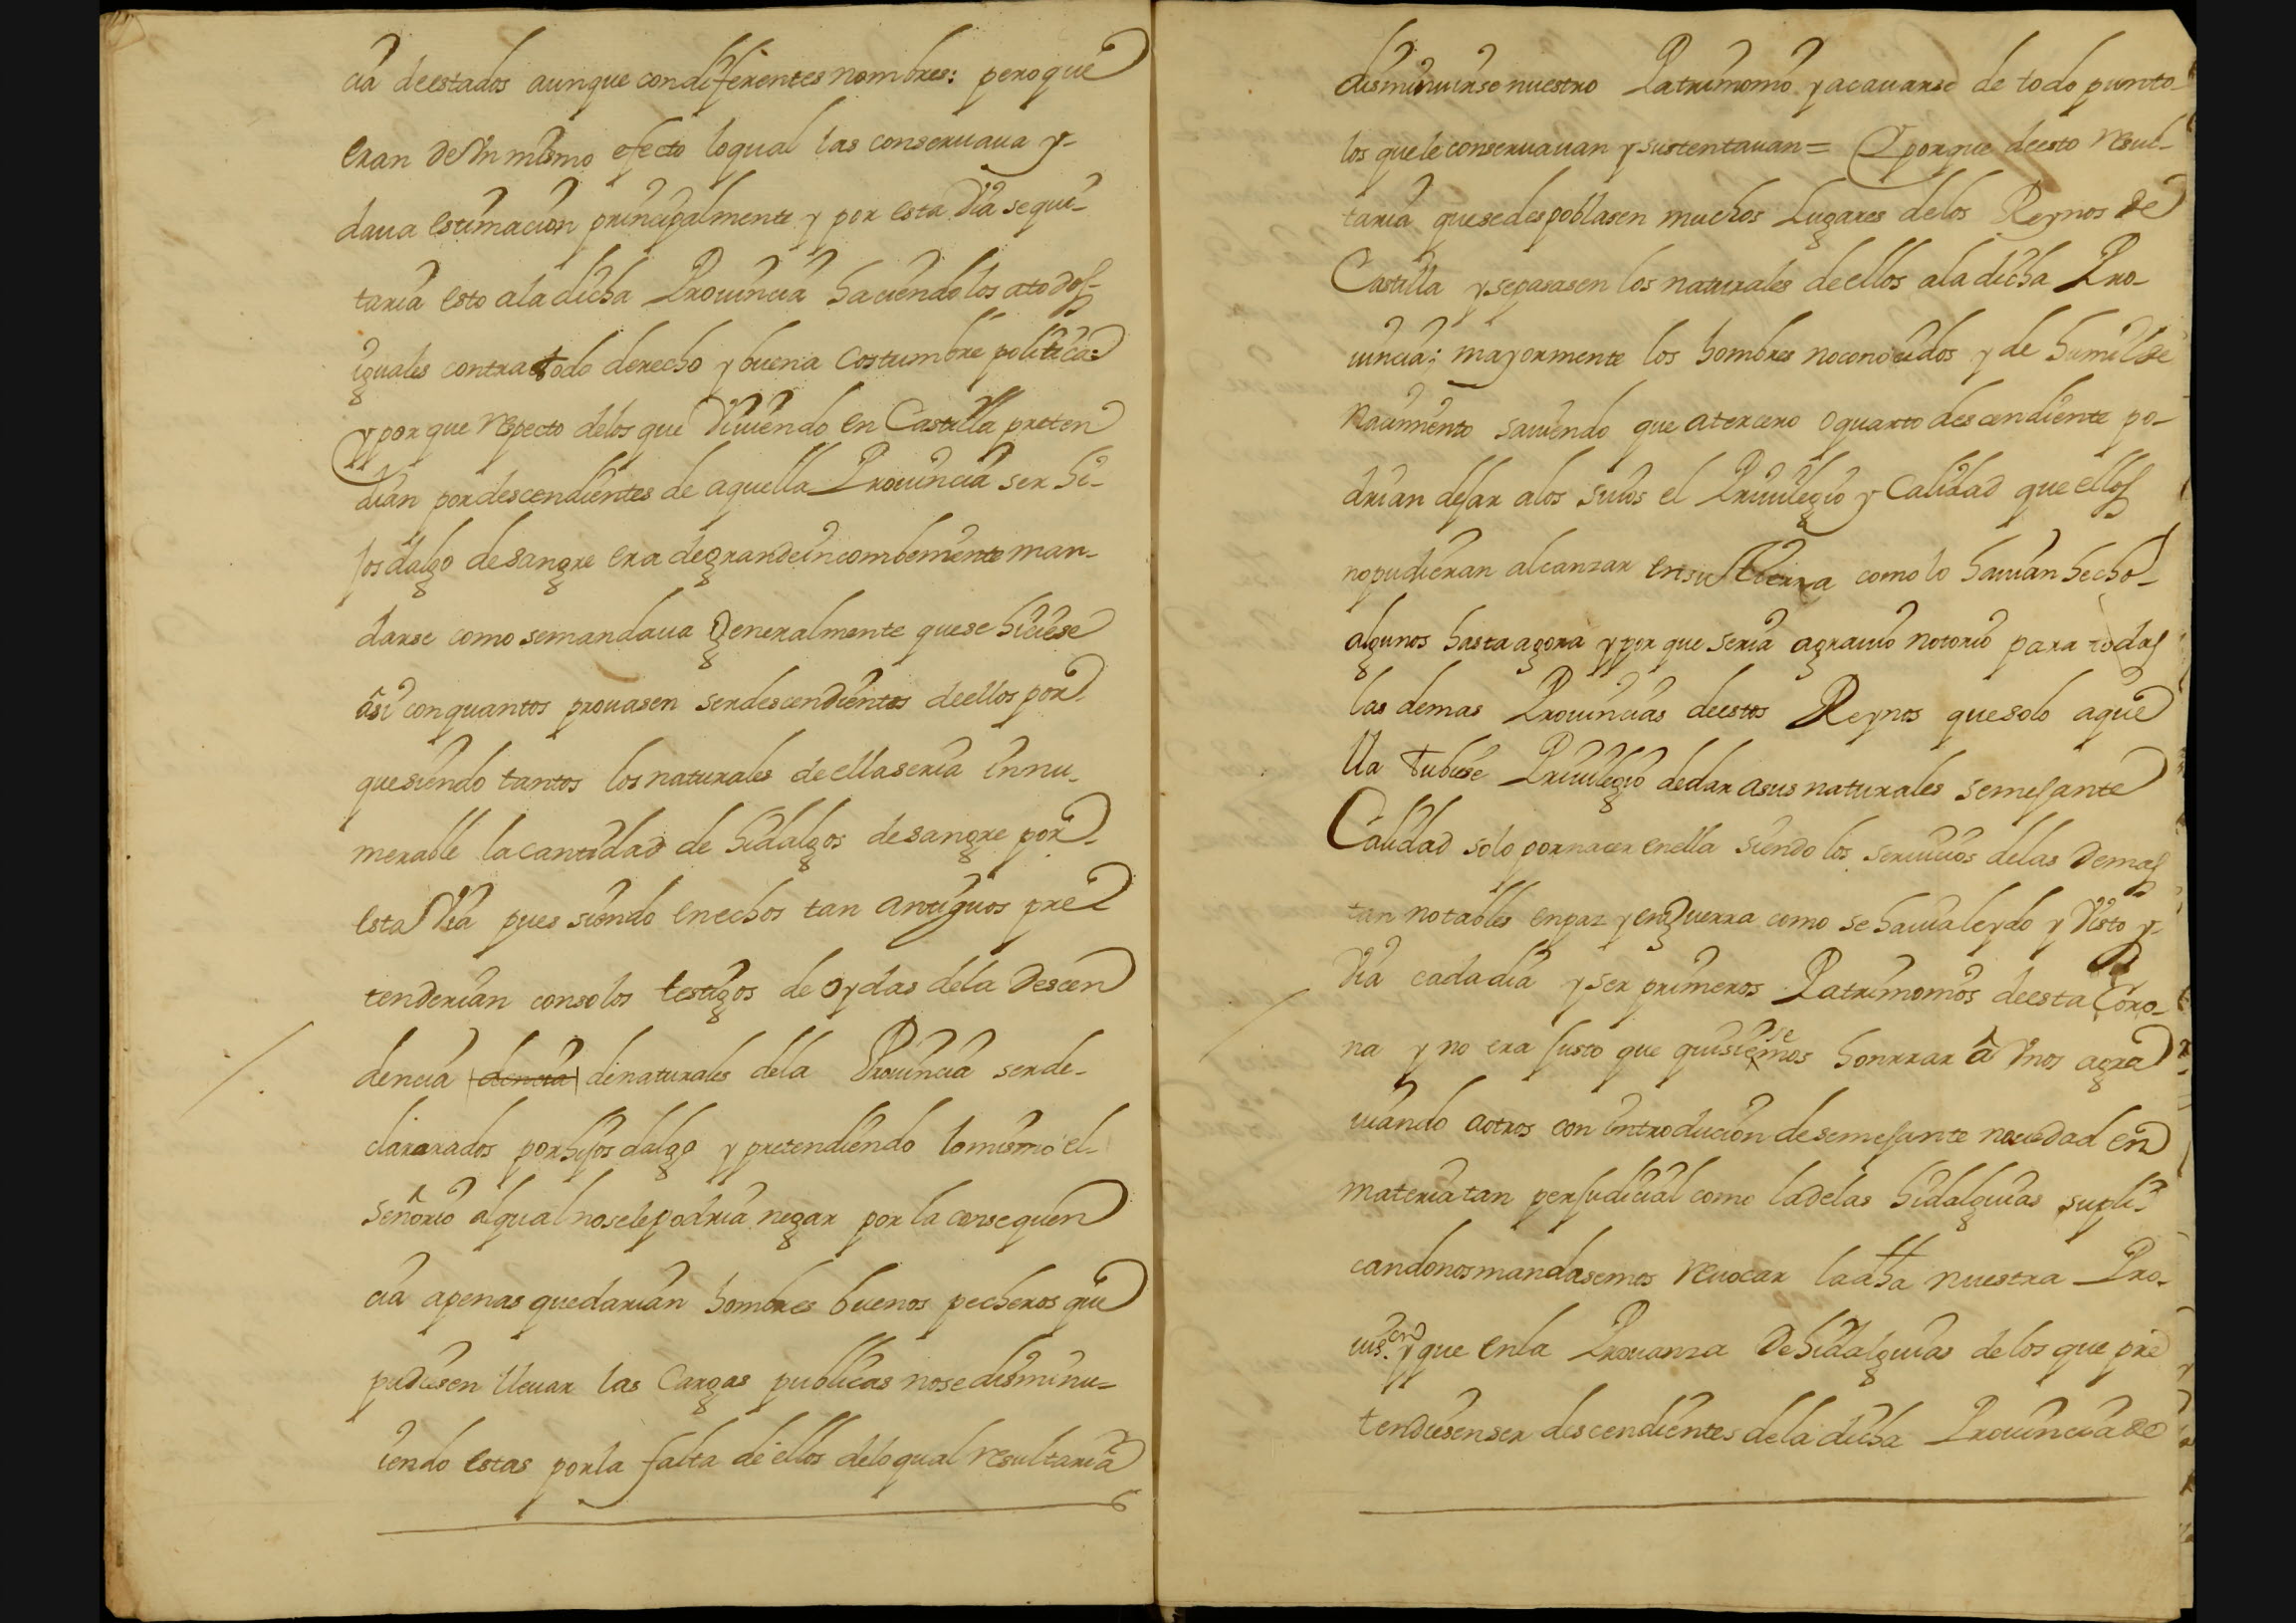 cia de estados aunque con diferentes nombres: pero que
eran de Un mismo efecto lo qual las conseruaua y-
daua estimacion principalmente y por esta Via se qui-
taria esto a la dicha Prouincia haciendolos a todos-
iguales contra todo derecho y buena costumbre politica=
y porque respecto de los que Viuiendo en Castilla preten
dian por descendientes de aquella Prouincia ser hi-
jos dalgo de sangre era de grande incombeniente man-
darse como se mandaua Generalmente que se hiciese
âsi con quantos prouasen ser descendientes de ellos por
que siendo tantos los naturales de ella seria innu-
merable la cantidad de hidalgos de sangre por-
esta Via pues siendo en echos tan antiguos pre
tenderian con solos testigos de oydas de la Descen
dencia dencia de naturales de la Prouincia ser de-
clararados por hijos dalgo y pretendiendo lo mismo el-
señorio al qual no se le podria negar por la consequen
cia apenas quedarian hombres buenos pecheros que
pudiesen lleuar las Cargas publicas no se disminu-
iendo estas por la falta de ellos de lo qual resultaria
disminuirse nuestro Patrimonio y acauarse de todo punto-
los que le conseruauan y sustentauan= Y porque de esto resul-
taria que se despoblasen muchos Lugares de los Reynos de
Castilla y se pasasen los naturales de ellos a la dicha Pro-
uincia; mayormente los hombres no conocidos y de humilde
nacimiento sauiendo que a tercero o quarto descendiente po-
drian dejar a los suios el Priuilegio y Calidad que ellos
no pudieran alcanzar en su tierra como lo hauian hecho-
algunos hasta agora y por que seria agrauio notorio para todas
las demas Prouincias de estos Reynos que solo aque
lla tubiese Priuilegio de dar a sus naturales semejante
Calidad solo por nacer en ella siendo los seruicios de las Demas
tan notables en paz y en Guerra como se hauia leydo y Visto y-
Via cada dia y ser primeros Patrimonios de esta Coro-
na y no era justo que quisiesemos honrrar â Vnos agra
uiando a otros con introducion de semejante nouedad en
materia tan perjudicial como la de las hidalguias supli-
candonos mandasemos reuocar la dha nuestra Pro-
uis.on y que en la Prouanza de hidalguias de los que pre
tendiesen ser descendientes de la dicha Prouincia de